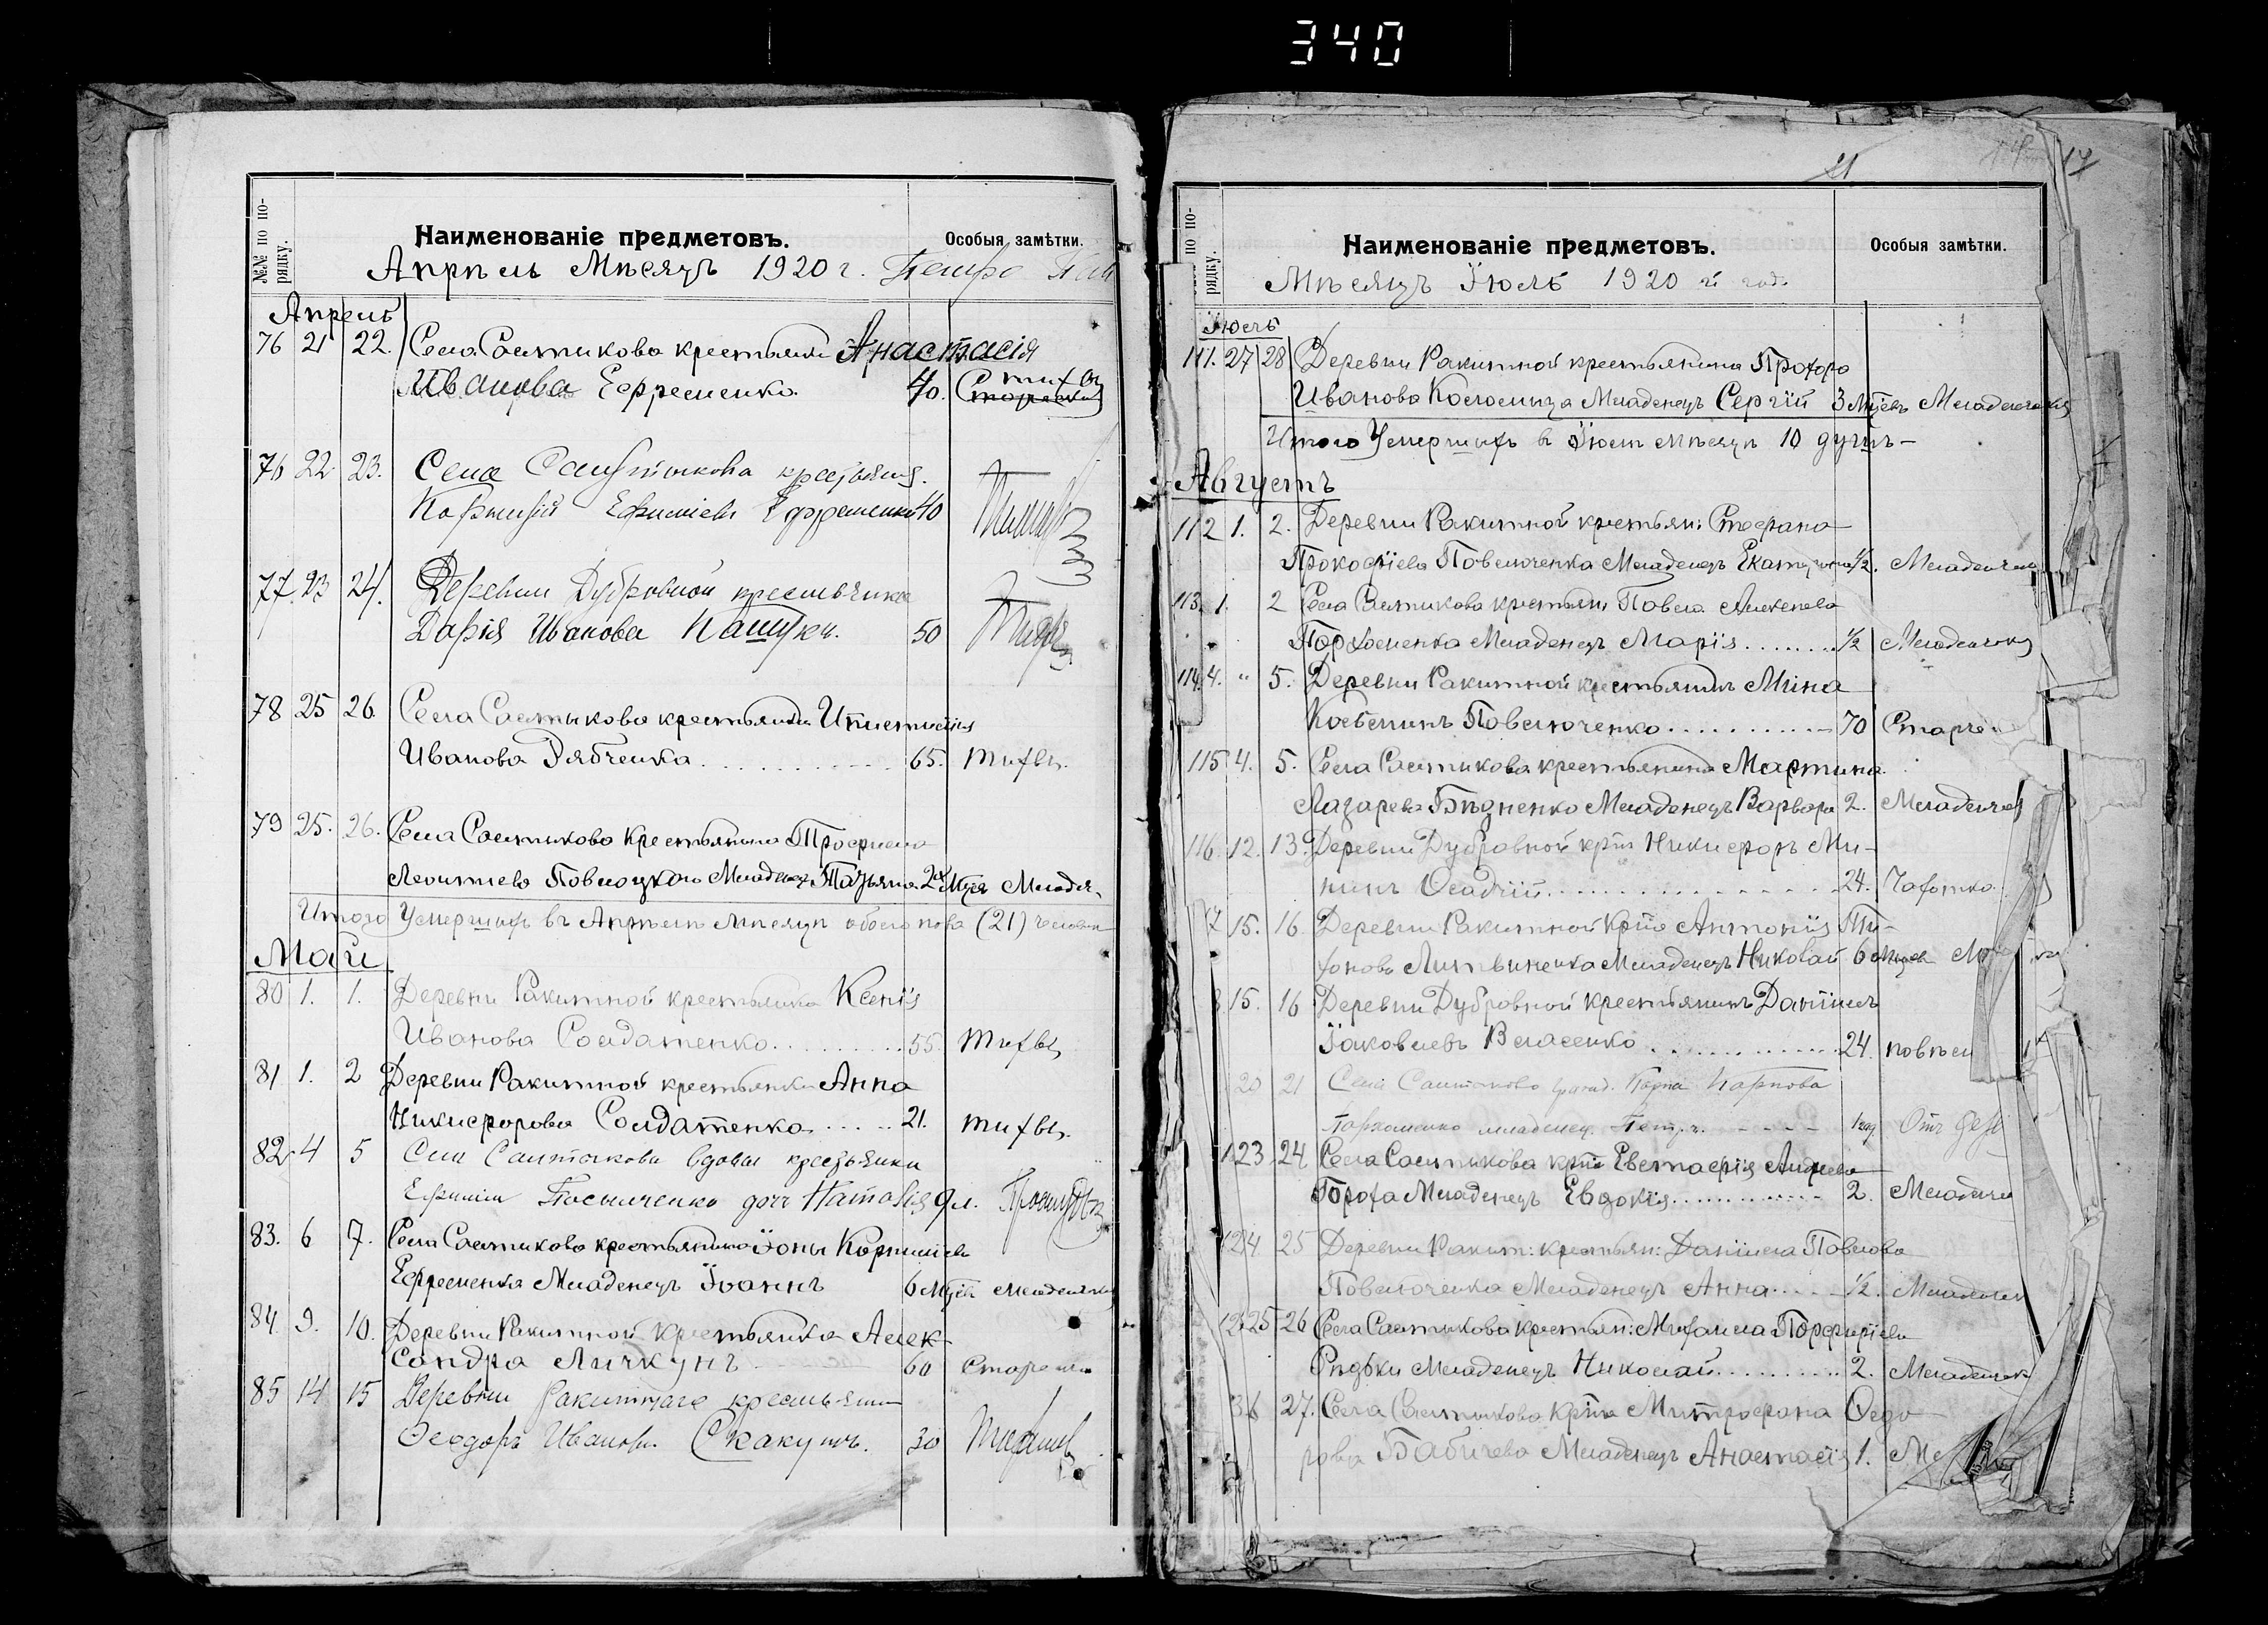 340
№№ по по-
рядку.
Наименованіе предметовъ.
Особыя замѣтки.
Апрѣль Мѣсяцъ 1920 г.
Апрель
76 21 22. Села Салтикова крестьян Анастасія
Иванова Ефременко 40. Тихвы
76 22 23. Села Салтыкова крестьяни.
Ефременко 40
77. 23 24. Деревни Дубровной крестьянка
Дарія Иванова 50
78 25 26. Села Салтыкова крестьянка
Иванова Рябченка 65. тихвы.
79 25. 26. Села Салтикова Крестьянина Трофима
Леонтиева Младенец Татьяна 2х Мцев Младен.
Итого Умершихъ въ Апрѣлѣ мѣсяцѣ обоего пола (21) человек
Май
80 1. 1. Деревни Ракитной крестьянка Ксенія
Иванова Солдатенко 55. тихвы
81 1. 2 Деревни Ракитной крестьянка Анна
Никифорова Солдатенко 21. тихвы.
82. 4 5 Села Салтыкова вдовы крестьянки
Ефиміи дочь Наталія 9 л.
83. 6 7. Села Салтикова крестьянина Іоны
Ефременка Младенецъ Іоаннъ 6 Мцев младенчес
84. 9. 10. Деревни Ракитной Крестьянка Алек-
сандра Личкунъ 60 Старости
85 14 15 Деревни Ракитнаго крестьянин
Феодоръ Иванов. Скакунъ. 30
21
17
по по-
рядку.
Наименованіе предметовъ.
Особыя замѣтки.
Мѣсяцъ Іюль 1920 й год.
Іюль
111. 27 28 Деревни Ракитной крестьянина Прохора
Иванова Младенецъ Сергій 3 Мцев Младенческая
Итого Умершихъ в Іюле мѣсяцѣ 10 душъ
Августъ
112 1. 2. Деревни Ракитной крестьян: Стефана
Прокофіева Павлюченка Младенецъ Екатерина 1/2. Младенческ
113. 1. 2 Села Салтикова крестьян Павла Алексеева
Пархоменка Младенецъ Марія 1/2 Младенческ
114. 4. " 5. Деревни Ракитной крестьянинъ Мина
Павлюченко 70 Старче
115 4. 5. Села Салтикова крестьянина Мартина
Лазарева Бѣдненко Младенецъ Варвара 2. Младенчес
116. 12. 13. Деревни Дубровной крт Никифоръ Ми-
нинъ Осадчій 24. Чахотка
7 15. 16. Деревни Ракитной Крта Антонія Ти-
хонова Литвиненка Младенецъ Николай 6 мцев
15. 16 Деревни Дубровной крестьянинъ Даніилъ
Іаковлевъ Власенко 24. повѣшен
20 21 Села Салтыкова Карпова
Пархоменко младенец. Петръ
23 24 Села Салтикова крта Евстафія Андреева
Гороха Младенецъ Евдокія 2. Младенче
24 25 Деревни Ракит: крестьян: Даніила Павлова
Павлюченка Младенецъ Анна 1/2. Младенчес
25 26 Села Салтикова крестьян: Михаила Порфиріева
Рѣдьки Младенецъ Николай 2. Младенчес
26 27. Села Салтыкова Крта Митрофана Федо
рова Бабичева Младенецъ Анастасія 1.